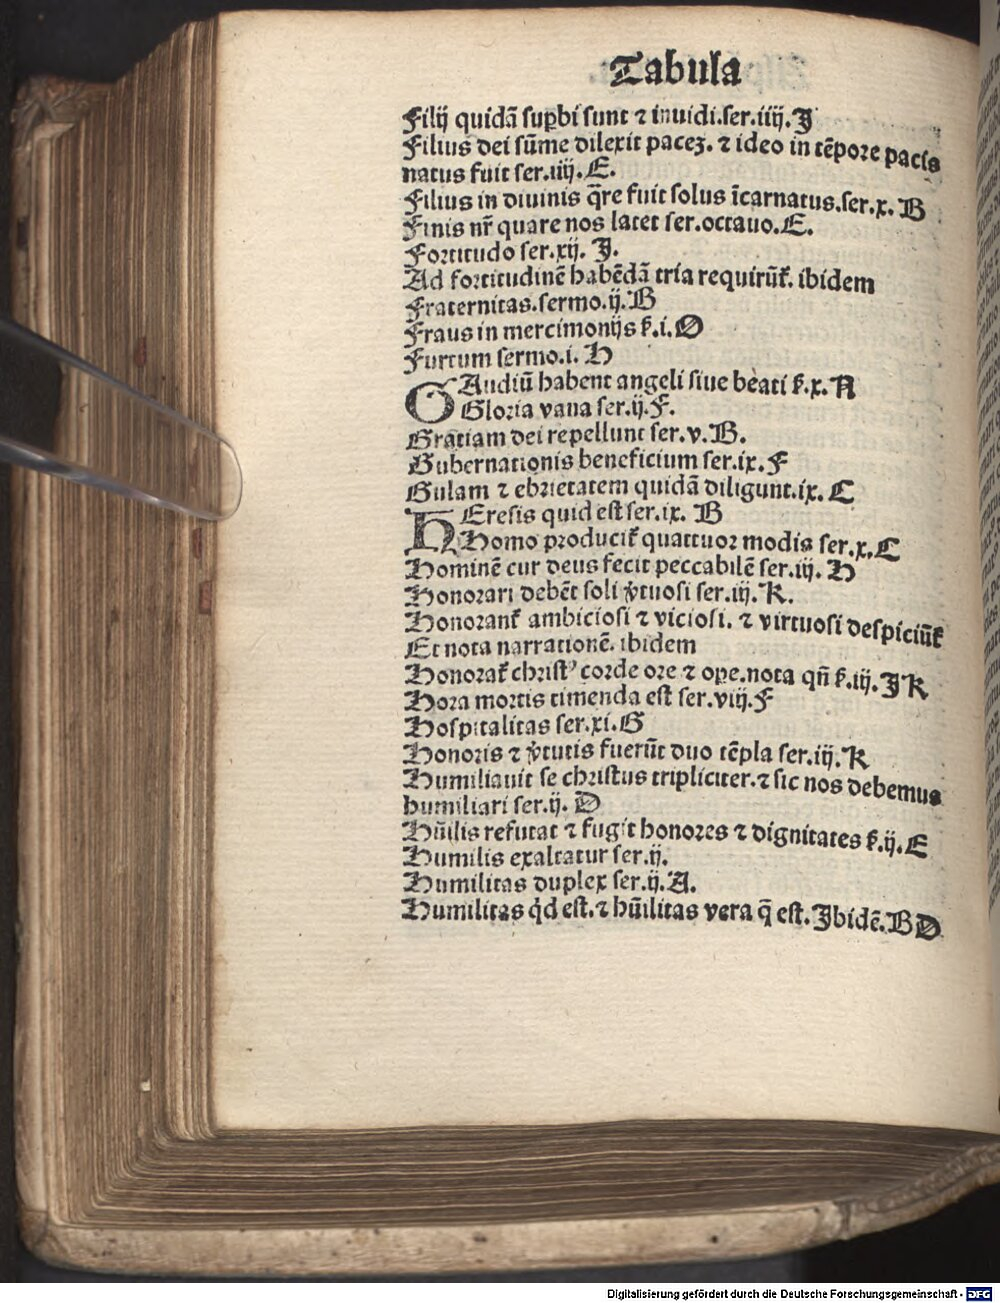 Tabula
Filij quidā suꝑbi sunt ⁊ inuidi.ser.iiij.J
Filius dei sūme dilexit pacez. ⁊ ideo in tēpore pacis
natus fuit ser.iiij.E.
Filius in diuinis q̄re fuit solus īcarnatus.ser.x.B
Finis nr̄ quare nos latet ser.octauo.E.
Fortitudo ser.xij. J.
Ad fortitudinē habēdā tria requirūt᷑. ibidem
Fraternitas.sermo.ij.B
Fraus in mercimonijs ẜ.i.O
Furtum sermo.i. H
GAudiū habent angeli siue beati ẜ.x.N
Gloria vana ser.ij.F.
Gratiam dei repellunt ser.v.B.
Gubernationis beneficium ser.ix.F
Gulam ⁊ ebrietatem quidā diligunt.ix.C
HEresis quid est ser.ix. B
Homo producit᷑ quattuor modis ser.x.C
Hominē cur deus fecit peccabilē ser.iij.H
Honorari debēt soli v̓tuosi ser.iij.K.
Honorant᷑ ambiciosi ⁊ viciosi. ⁊ virtuosi despiciūt᷑
Et nota narrationē. ibidem
Honorat᷑ christꝰ corde ore ⁊ oꝑe.nota qn̄ ẜ.iij.J K
Hora mortis timenda est ser.viij.F
Hospitalitas ser.xi.G
Honoris ⁊ v̓tutis fuerūt duo tēpla ser.iij.K
Humiliauit se christus tripliciter.⁊ sic nos debemus
humiliari ser.ij. D
Hūilis refutat ⁊ fugit honores ⁊ dignitates ẜ.ij.E
Humilis exaltatur ser.ij.
Humilitas duplex ser.ij.A.
Humilitas qd̓ est.⁊ hūilitas vera q̄ est.Ibidē.B D
Digitalisierung gefördert durch die Deutsche Forschungsgemeinschaft - DFG